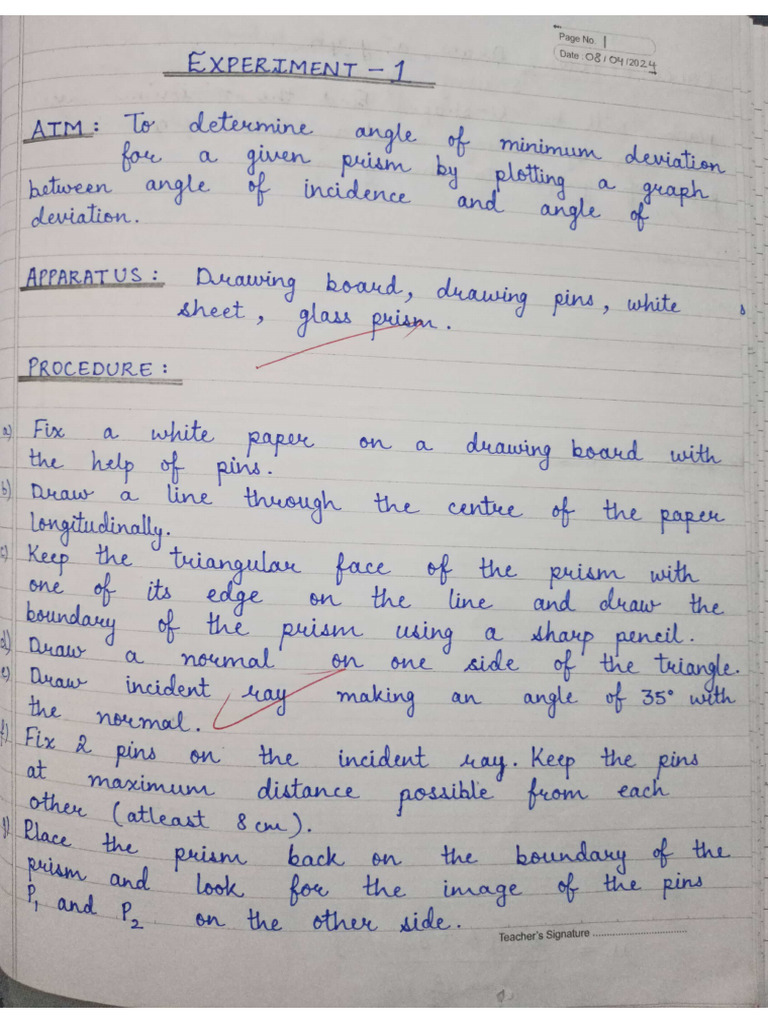 Page No. 1
Date : 08/04/2024
EXPERIMENT - 1
AIM : To determine angle of minimum deviation
for a given prism by plotting a graph
between angle of incidence and angle of
deviation.
APPARATUS : Drawing board, drawing pins, white
sheet, glass prism.
PROCEDURE :
a) Fix a white paper on a drawing board with
the help of pins.
b) Draw a line through the centre of the paper
longitudinally.
c) Keep the triangular face of the prism with
one of its edge on the line and draw the
boundary of the prism using a sharp pencil.
d) Draw a normal on one side of the triangle.
e) Draw incident ray making an angle of 35° with
the normal.
f) Fix 2 pins on the incident ray. Keep the pins
at maximum distance possible from each
other (atleast 8 cm).
g) Place the prism back on the boundary of the
prism and look for the image of the pins
P₁ and P₂ on the other side.
Teacher's Signature